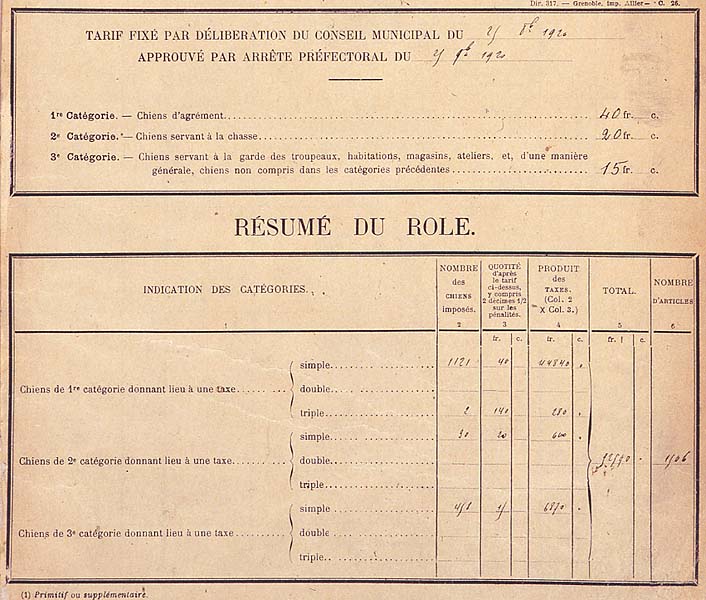 Dir. 317. — Grenoble, imp. Allier — C. 26.
TARIF FIXÉ PAR DÉLIBERATION DU CONSEIL MUNICIPAL DU 1920
APPROUVÉ PAR ARRÊTE PRÉFECTORAL DU 1920
1re Catégorie. — Chiens d'agrément 40 fr. c.
2e Catégorie. — Chiens servant à la chasse 20 fr. c.
3e Catégorie. — Chiens servant à la garde des troupeaux, habitations, magasins, ateliers, et, d'une manière
générale, chiens non compris dans les catégories précédentes 15 fr. c.
RÉSUMÉ DU ROLE.
INDICATION DES CATÉGORIES.
1
NOMBRE
des
CHIENS
imposés.
2
QUOTITÉ
d'après
le tarif
ci-dessus,
y compris
2 décimes 1/2
sur les
pénalités.
3
PRODUIT
des
TAXES.
(Col. 2
X Col. 3.)
4
TOTAL.
5
NOMBRE
D'ARTICLES
6
fr. c. fr. c. fr. c.
Chiens de 1re catégorie donnant lieu à une taxe
simple 1121 40 44840
double
triple 2 140 280
Chiens de 2e catégorie donnant lieu à une taxe
simple 30 20 600
double
triple
Chiens de 3e catégorie donnant lieu à une taxe
simple 6870
double
triple
(1) Primitif ou supplémentaire.